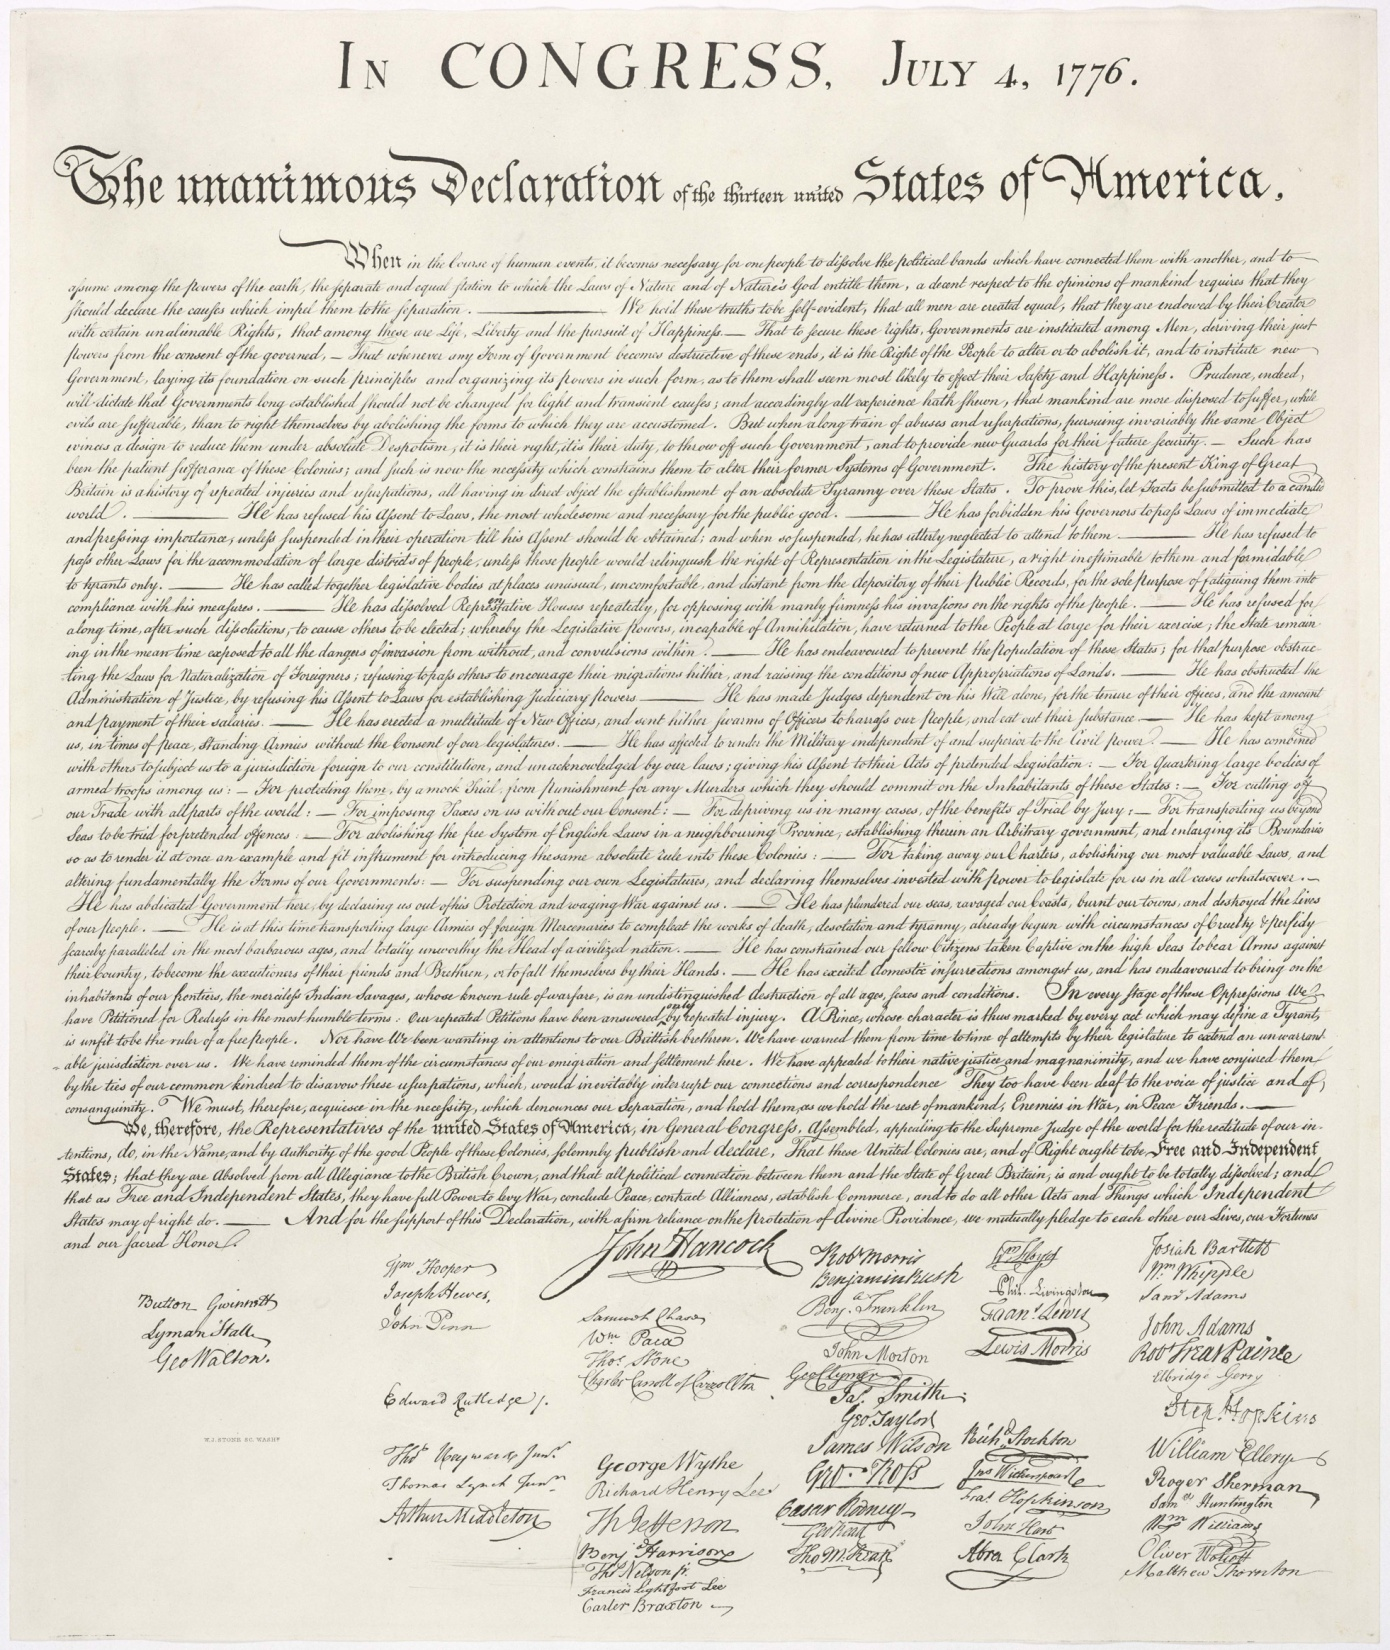 In CONGRESS, July 4, 1776.
The unanimous Declaration of the thirteen united States of America,
When in the Course of human events, it becomes necessary for one people to dissolve the political bands which have connected them with another, and to
assume among the powers of the earth, the separate and equal station to which the Laws of Nature and of Nature's God entitle them, a decent respect to the opinions of mankind requires that they
should declare the causes which impel them to the separation. ——— We hold these truths to be self-evident, that all men are created equal, that they are endowed by their Creator
with certain unalienable Rights, that among these are Life, Liberty and the pursuit of Happiness.— That to secure these rights, Governments are instituted among Men, deriving their just
powers from the consent of the governed, — That whenever any Form of Government becomes destructive of these ends, it is the Right of the People to alter or to abolish it, and to institute new
Government, laying its foundation on such principles and organizing its powers in such form, as to them shall seem most likely to effect their Safety and Happiness. Prudence, indeed,
will dictate that Governments long established should not be changed for light and transient causes; and accordingly all experience hath shewn, that mankind are more disposed to suffer, while
evils are sufferable, than to right themselves by abolishing the forms to which they are accustomed. But when a long train of abuses and usurpations, pursuing invariably the same Object
evinces a design to reduce them under absolute Despotism, it is their right, it is their duty, to throw off such Government, and to provide new Guards for their future security.— Such has
been the patient sufferance of these Colonies; and such is now the necessity which constrains them to alter their former Systems of Government. The history of the present King of Great
Britain is a history of repeated injuries and usurpations, all having in direct object the establishment of an absolute Tyranny over these States. To prove this, let Facts be submitted to a candid
world. ——— He has refused his Assent to Laws, the most wholesome and necessary for the public good. ——— He has forbidden his Governors to pass Laws of immediate
and pressing importance, unless suspended in their operation till his Assent should be obtained; and when so suspended, he has utterly neglected to attend to them. ——— He has refused to
pass other Laws for the accommodation of large districts of people, unless those people would relinquish the right of Representation in the Legislature, a right inestimable to them and formidable
to tyrants only. ——— He has called together legislative bodies at places unusual, uncomfortable, and distant from the depository of their Public Records, for the sole purpose of fatiguing them into
compliance with his measures. ——— He has dissolved Representative Houses repeatedly, for opposing with manly firmness his invasions on the rights of the people. ——— He has refused for
a long time, after such dissolutions, to cause others to be elected; whereby the Legislative powers, incapable of Annihilation, have returned to the People at large for their exercise; the State remain
ing in the mean time exposed to all the dangers of invasion from without, and convulsions within. ——— He has endeavoured to prevent the population of these States; for that purpose obstruc-
ting the Laws for Naturalization of Foreigners; refusing to pass others to encourage their migrations hither, and raising the conditions of new Appropriations of Lands. ——— He has obstructed the
Administration of Justice, by refusing his Assent to Laws for establishing Judiciary powers. ——— He has made Judges dependent on his Will alone, for the tenure of their offices, and the amount
and payment of their salaries. ——— He has erected a multitude of New Offices, and sent hither swarms of Officers to harrass our people, and eat out their substance. —— He has kept among
us, in times of peace, Standing Armies without the Consent of our legislatures. ——— He has affected to render the Military independent of and superior to the Civil power. ——— He has combined
with others to subject us to a jurisdiction foreign to our constitution, and unacknowledged by our laws; giving his Assent to their Acts of pretended Legislation: — For Quartering large bodies of
armed troops among us: — For protecting them, by a mock Trial, from punishment for any Murders which they should commit on the Inhabitants of these States: — For cutting off
our Trade with all parts of the world: — For imposing Taxes on us without our Consent: — For depriving us in many cases, of the benefits of Trial by Jury: — For transporting us beyond
Seas to be tried for pretended offences — For abolishing the free System of English Laws in a neighbouring Province, establishing therein an Arbitrary government, and enlarging its Boundaries
so as to render it at once an example and fit instrument for introducing the same absolute rule into these Colonies: —— For taking away our Charters, abolishing our most valuable Laws, and
altering fundamentally the Forms of our Governments: — For suspending our own Legislatures, and declaring themselves invested with power to legislate for us in all cases whatsoever. —
He has abdicated Government here, by declaring us out of his Protection and waging War against us. —— He has plundered our seas, ravaged our Coasts, burnt our towns, and destroyed the lives
of our people. —— He is at this time transporting large Armies of foreign Mercenaries to compleat the works of death, desolation and tyranny, already begun with circumstances of Cruelty & perfidy
scarcely paralleled in the most barbarous ages, and totally unworthy the Head of a civilized nation. —— He has constrained our fellow Citizens taken Captive on the high Seas to bear Arms against
their Country, to become the executioners of their friends and Brethren, or to fall themselves by their Hands. —— He has excited domestic insurrections amongst us, and has endeavoured to bring on the
inhabitants of our frontiers, the merciless Indian Savages, whose known rule of warfare, is an undistinguished destruction of all ages, sexes and conditions. In every stage of these Oppressions We
have Petitioned for Redress in the most humble terms: Our repeated Petitions have been answered only by repeated injury. A Prince, whose character is thus marked by every act which may define a Tyrant,
is unfit to be the ruler of a free people. Nor have We been wanting in attentions to our Brittish brethren. We have warned them from time to time of attempts by their legislature to extend an unwarrant-
able jurisdiction over us. We have reminded them of the circumstances of our emigration and settlement here. We have appealed to their native justice and magnanimity, and we have conjured them
by the ties of our common kindred to disavow these usurpations, which, would inevitably interrupt our connections and correspondence They too have been deaf to the voice of justice and of
consanguinity. We must, therefore, acquiesce in the necessity, which denounces our Separation, and hold them, as we hold the rest of mankind, Enemies in War, in Peace Friends. ——
We, therefore, the Representatives of the united States of America, in General Congress, Assembled, appealing to the Supreme Judge of the world for the rectitude of our in-
tentions, do, in the Name, and by Authority of the good People of these Colonies, solemnly publish and declare, That these United Colonies are, and of Right ought to be Free and Independent
States; that they are Absolved from all Allegiance to the British Crown, and that all political connection between them and the State of Great Britain, is and ought to be totally dissolved; and
that as Free and Independent States, they have full Power to levy War, conclude Peace, contract Alliances, establish Commerce, and to do all other Acts and Things which Independent
States may of right do. ——— And for the support of this Declaration, with a firm reliance on the protection of divine Providence, we mutually pledge to each other our Lives, our Fortunes
and our sacred Honor.
Button Gwinnett
Lyman Hall
Geo Walton.
W.J. STONE SC. WASHN
Wm Hooper
Joseph Hewes,
John Penn
Edward Rutledge /.
Thos Heyward Junr.
Thomas Lynch Junr.
Arthur Middleton
John Hancock
Samuel Chase
Wm. Paca
Thos. Stone
Charles Carroll of Carrollton
George Wythe
Richard Henry Lee
Th Jefferson
Benj. Harrison
Thos Nelson jr.
Francis Lightfoot Lee
Carter Braxton
Robt Morris
Benjamin Rush
Benja. Franklin
John Morton
Geo Clymer
Jas. Smith
Geo. Taylor
James Wilson
Geo. Ross
Caesar Rodney
Geo Read
Tho M:Kean
Wm Floyd
Phil. Livingston
Frans. Lewis
Lewis Morris
Richd. Stockton
Jno Witherspoon
Fras. Hopkinson
John Hart
Abra Clark
Josiah Bartlett
Wm. Whipple
Saml Adams
John Adams
Robt Treat Paine
Elbridge Gerry
Step. Hopkins
William Ellery
Roger Sherman
Saml Huntington
Wm Williams
Oliver Wolcott
Matthew Thornton